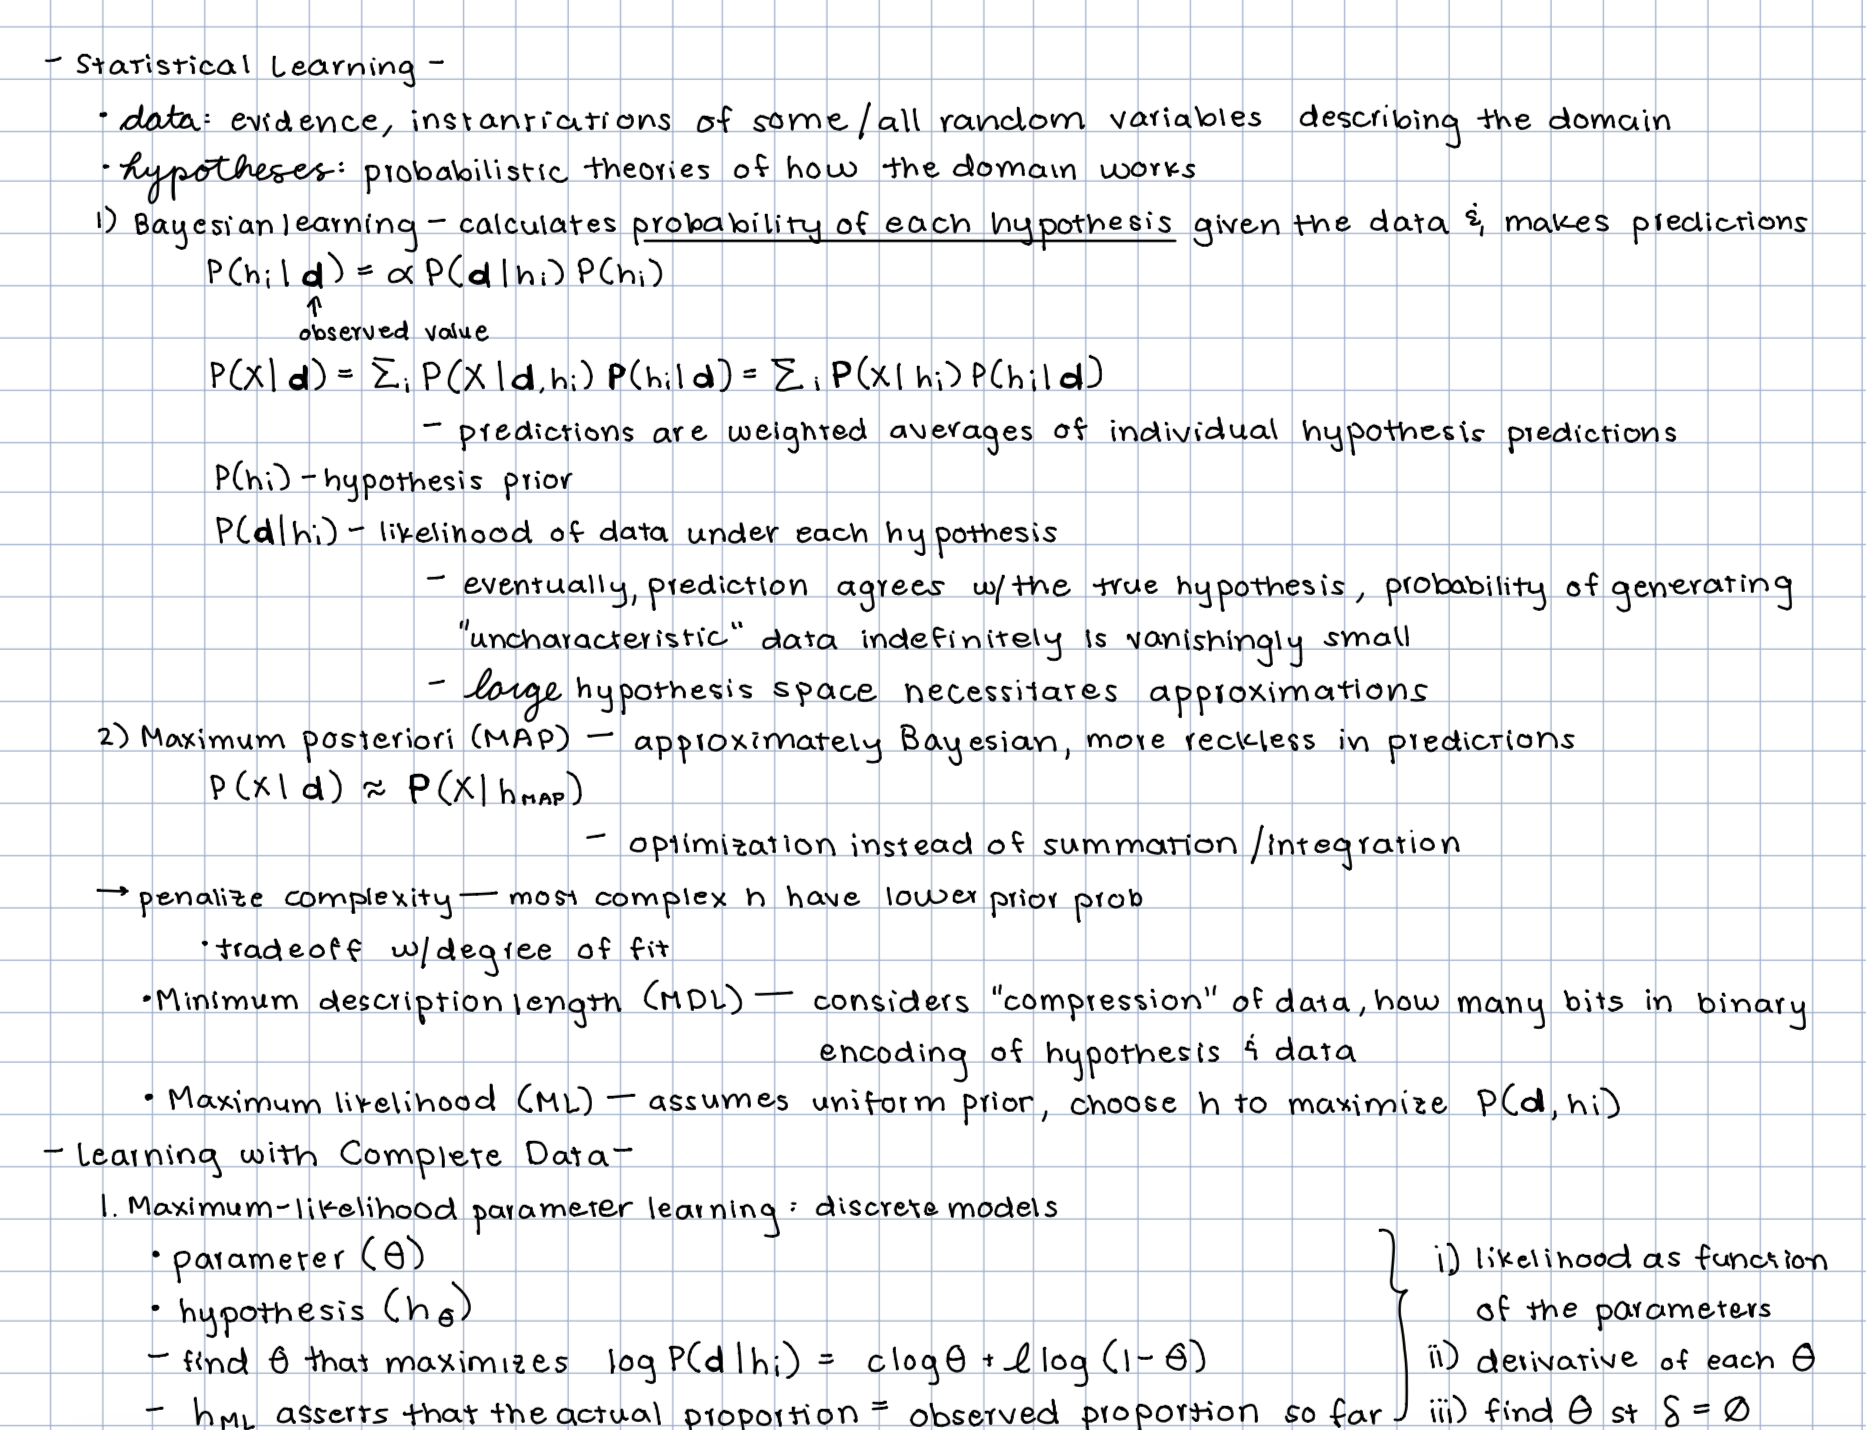 - Statistical Learning -
· data: evidence, instantiations of some/all random variables describing the domain
· hypotheses: probabilistic theories of how the domain works
1) Bayesian learning - calculates probability of each hypothesis given the data & makes predictions
P(hi | d) = α P(d | hi) P(hi)
↑
observed value
P(X | d) = Σi P(X | d, hi) P(hi | d) = Σi P(X | hi) P(hi | d)
- predictions are weighted averages of individual hypothesis predictions
P(hi) - hypothesis prior
P(d | hi) - likelihood of data under each hypothesis
- eventually, prediction agrees w/ the true hypothesis, probability of generating
"uncharacteristic" data indefinitely is vanishingly small
- large hypothesis space necessitates approximations
2) Maximum posteriori (MAP) - approximately Bayesian, more reckless in predictions
P(X | d) ≈ P(X | hMAP)
- optimization instead of summation / integration
→ penalize complexity - most complex h have lower prior prob
· tradeoff w/ degree of fit
· Minimum description length (MDL) - considers "compression" of data, how many bits in binary
encoding of hypothesis & data
· Maximum likelihood (ML) - assumes uniform prior, choose h to maximize P(d, hi)
- Learning with Complete Data -
1. Maximum-likelihood parameter learning: discrete models
· parameter (θ)
· hypothesis (hθ)
- find θ that maximizes log P(d | hi) = c log θ + ℓ log (1 - θ)
- hML asserts that the actual proportion = observed proportion so far
i) likelihood as function
of the parameters
ii) derivative of each θ
iii) find θ st δ = ∅